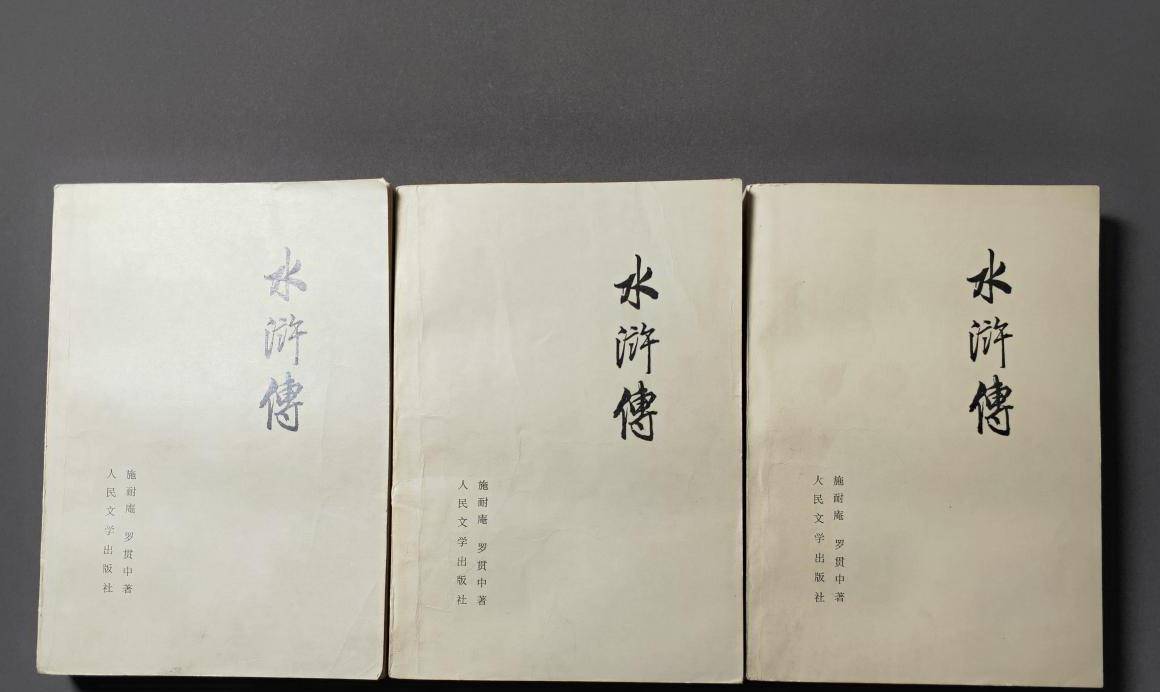 水滸傳
施耐庵 罗贯中著
人民文学出版社
水滸傳
施耐庵 罗贯中著
人民文学出版社
水滸傳
施耐庵 罗贯中著
人民文学出版社